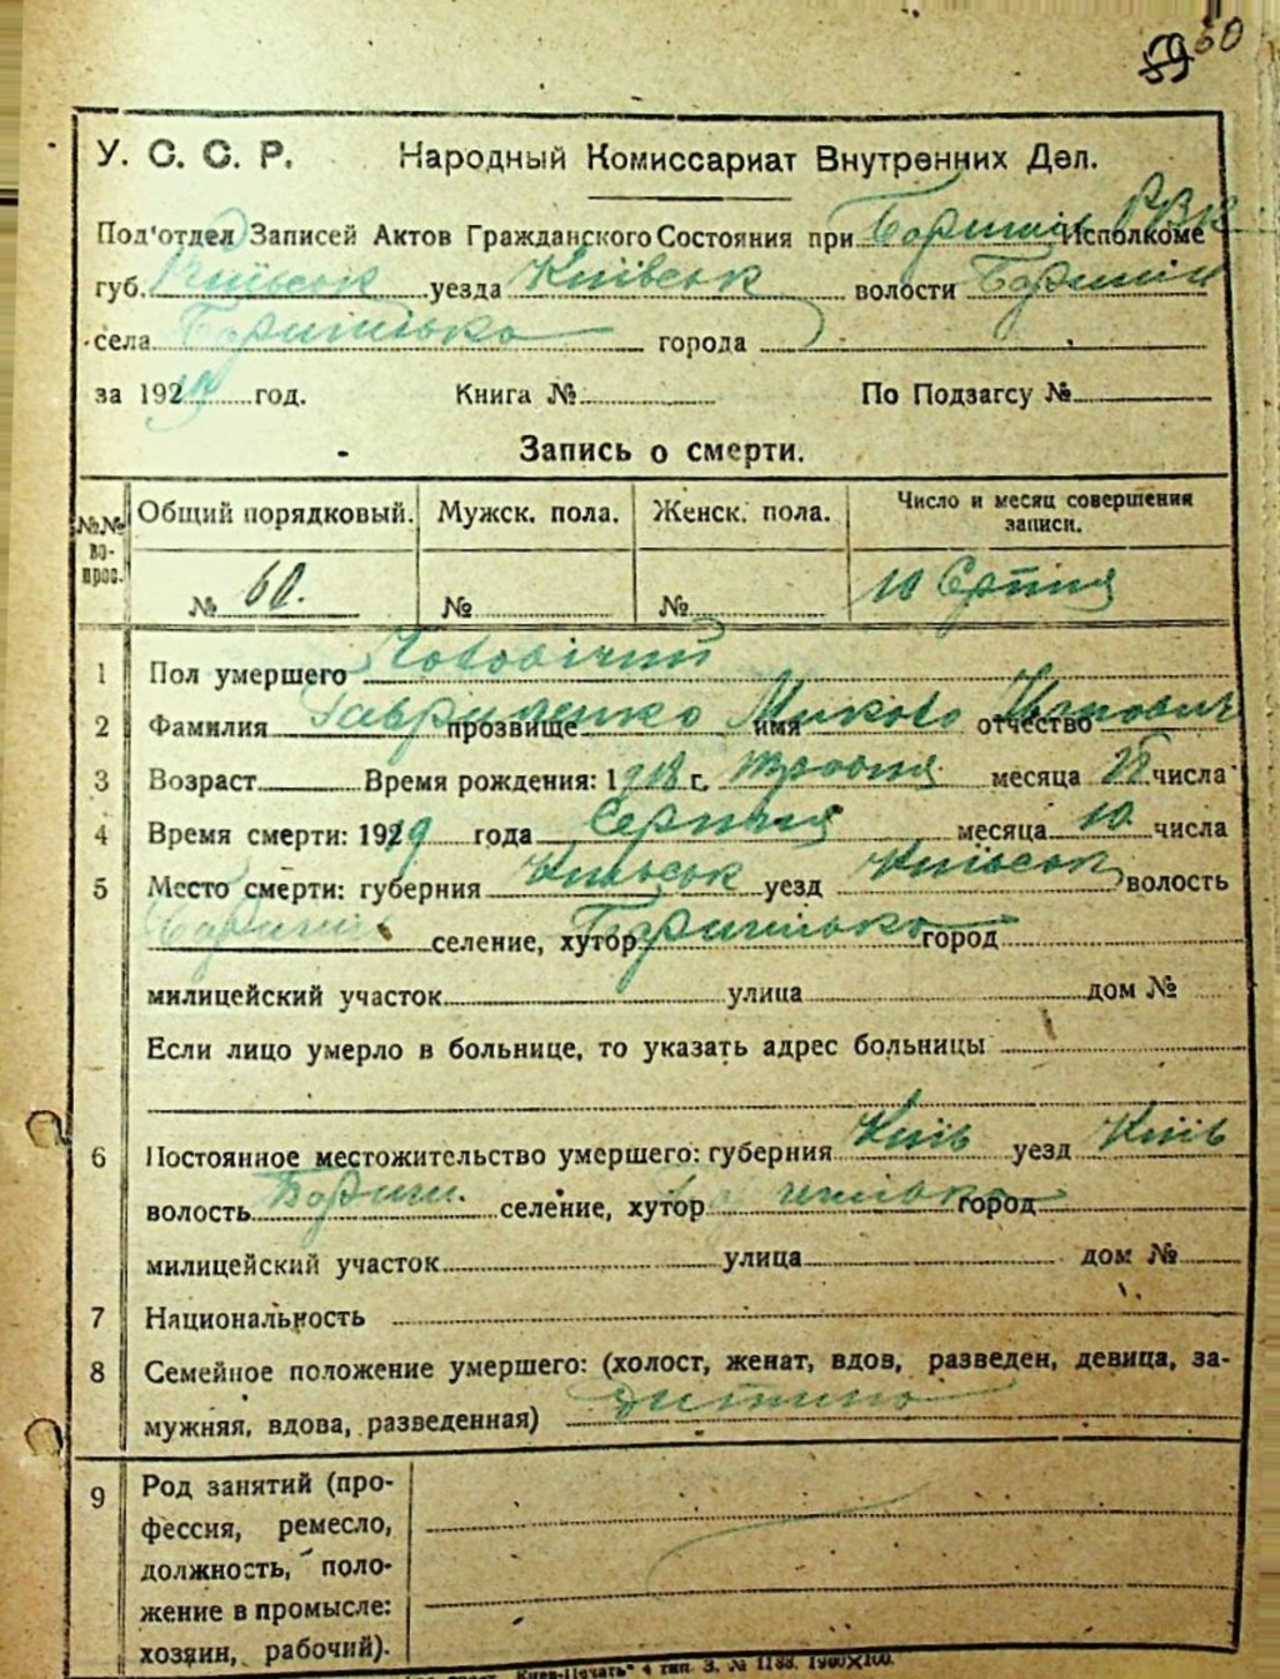 60
У. С. С. Р. Народный Комиссариат Внутренних Дел.
Под'отдел Записей Актов Гражданского Состояния при Бориспіль РВК Исполкоме
губ. Київськ уезда Київськ волости Бориспіл
села города
за 192 год. Книга № По Подзагсу №
Запись о смерти.
№№ во-прос. Общий порядковый. Мужск. пола. Женск. пола. Число и месяц совершения записи.
№ 60. № № 10 Серпня
1 Пол умершего Чоловічий
2 Фамилия Гавриленко прозвище Микола имя отчество
3 Возраст Время рождения: 1918 г. месяца числа
4 Время смерти: 1929 года Серпня месяца 10 числа
5 Место смерти: губерния Київськ уезд Київськ волость
селение, хутор город
милицейский участок улица дом №
Если лицо умерло в больнице, то указать адрес больницы
6 Постоянное местожительство умершего: губерния Київ уезд Київ
волость селение, хутор город
милицейский участок улица дом №
7 Национальность
8 Семейное положение умершего: (холост, женат, вдов, разведен, девица, за-
мужняя, вдова, разведенная) дитина
9 Род занятий (про-
фессия, ремесло,
должность, поло-
жение в промысле:
хозяин, рабочий).
"Киев-Печать" 4 тип. З. № 1188. 1900×100.